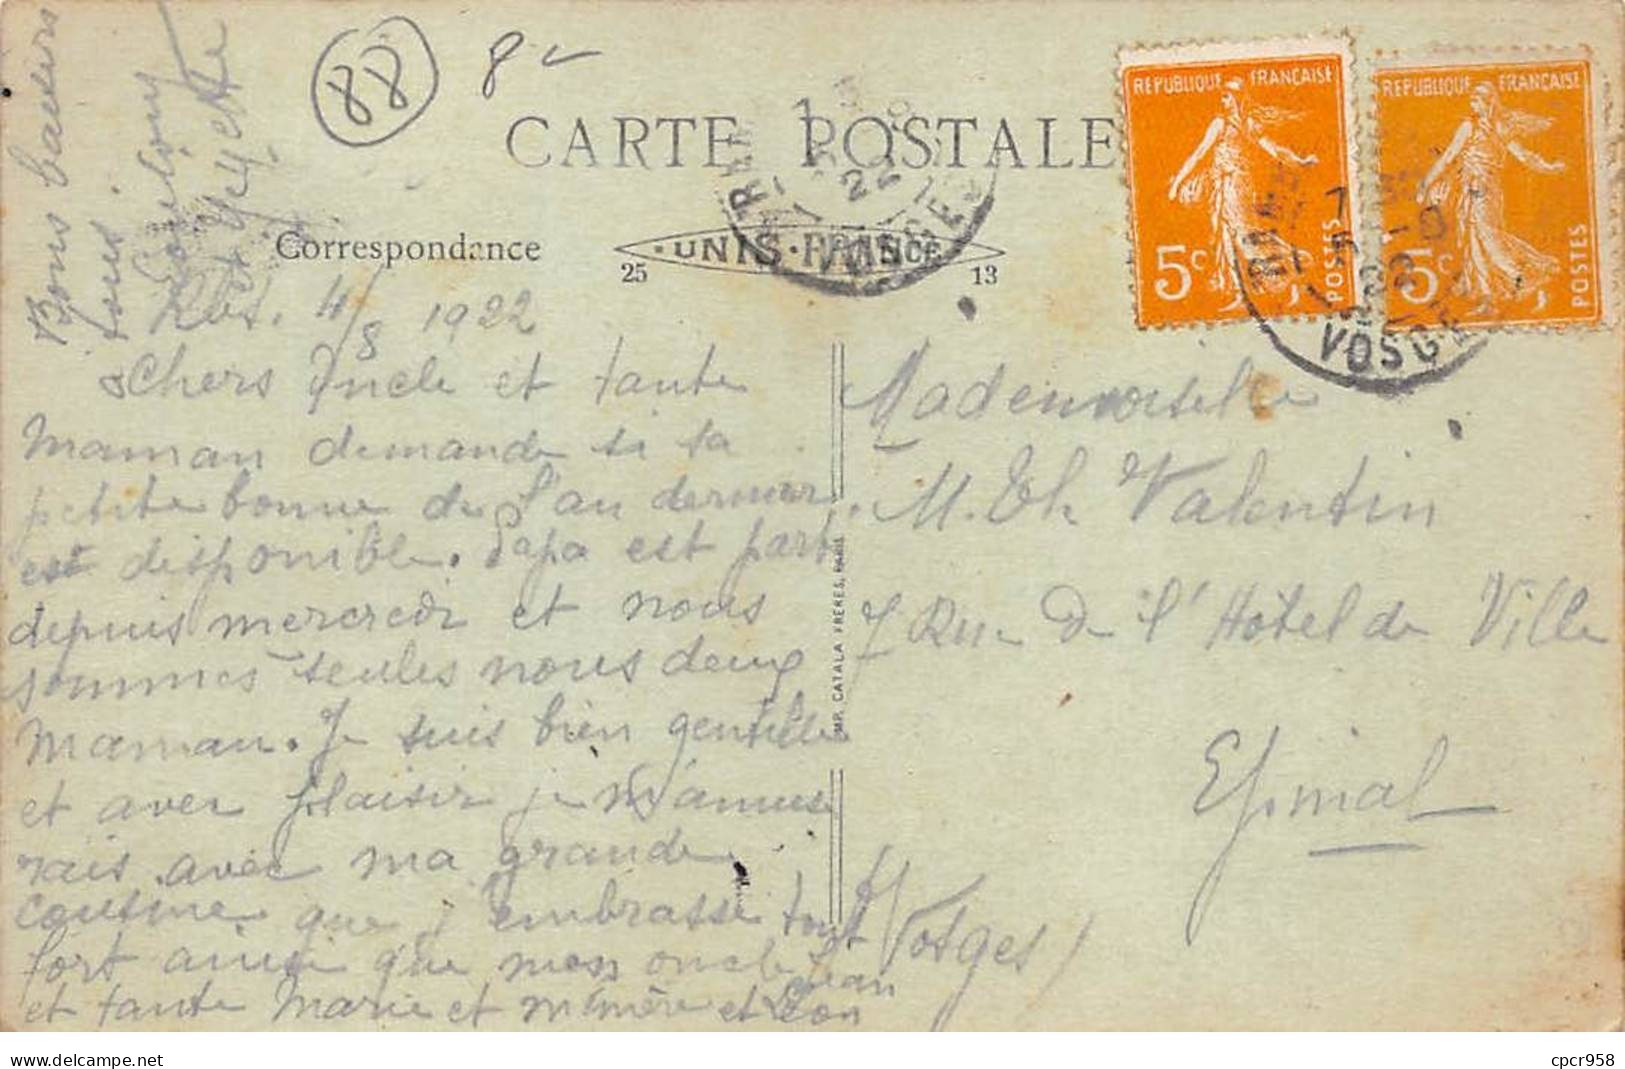 88
8
CARTE POSTALE
Correspondance
UNIS-FRANCE
25
13
REPUBLIQUE FRANCAISE
5c
POSTES
REPUBLIQUE FRANCAISE
5c
POSTES
VOSGES
VOSGES
Bons baisers
tous
et
4/8 1922
Chers Oncle et tante
Maman demande si ta
petite bonne de l'an dernier
est disponible. Papa est parti
depuis mercredi et nous
sommes seules nous deux
Maman. Je suis bien gentille
et avec plaisir je m'amuse
rais avec ma grande
cousine que j'embrasse tout
fort ainsi que mon oncle Jean
et tante Marie et mémère et Léon
IMP. CATALA FRERES, PARIS
Mademoiselle
M. Th Valentin
7 Rue de l'Hôtel de Ville
Epinal
(Vosges)
cpcr958